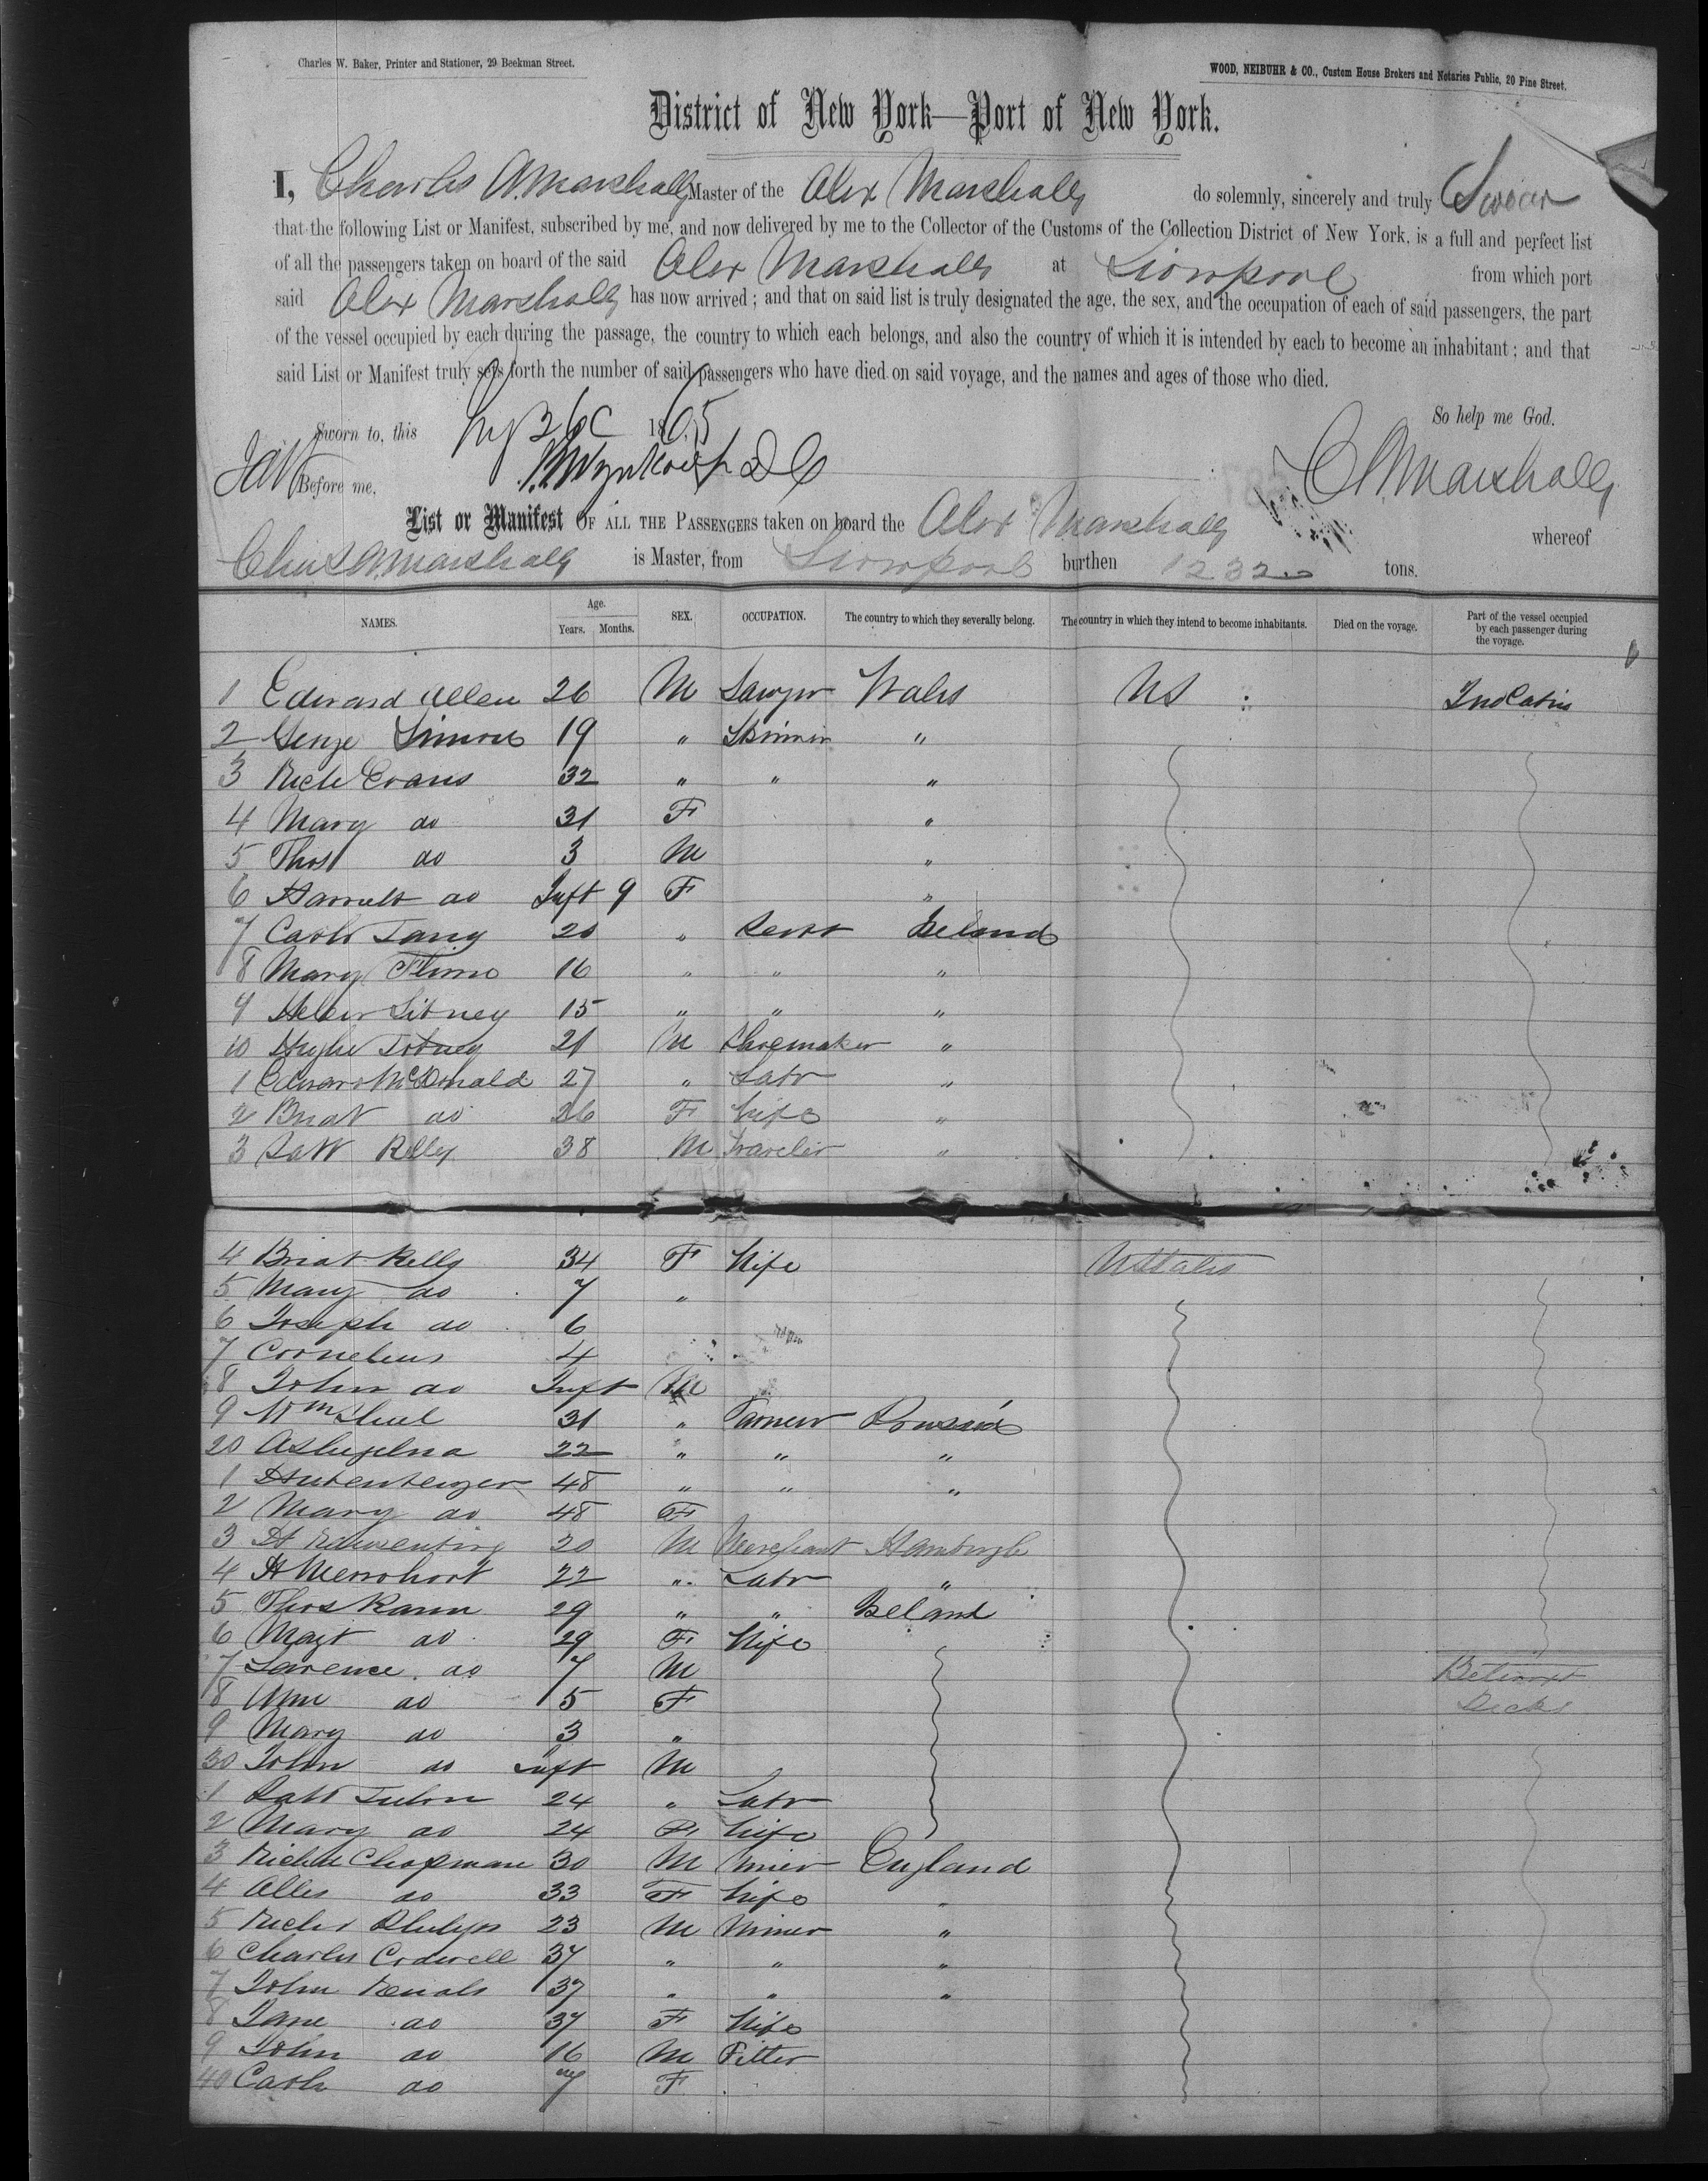 Charles W. Baker, Printer and Stationer, 29 Beekman Street.
WOOD, NEIBUHR & CO., Custom House Brokers and Notaries Public, 20 Pine Street.
District of New York—Port of New York.
I, Charles A. Marshall Master of the Alex Marshall do solemnly, sincerely and truly Swear
that the following List or Manifest, subscribed by me, and now delivered by me to the Collector of the Customs of the Collection District of New York, is a full and perfect list
of all the passengers taken on board of the said Alex Marshall at Liverpool from which port
said Alex Marshall has now arrived; and that on said list is truly designated the age, the sex, and the occupation of each of said passengers, the part
of the vessel occupied by each during the passage, the country to which each belongs, and also the country of which it is intended by each to become an inhabitant; and that
said List or Manifest truly sets forth the number of said passengers who have died on said voyage, and the names and ages of those who died.
So help me God.
Sworn to, this 26 1865
Before me, C A Marshall
List or Manifest OF ALL THE PASSENGERS taken on board the Alex Marshall whereof
Chas A Marshall is Master, from Liverpool burthen 1232 tons.
NAMES. Age. Years. Months. SEX. OCCUPATION. The country to which they severally belong. The country in which they intend to become inhabitants. Died on the voyage. Part of the vessel occupied by each passenger during the voyage.
1 Edward Allen 26 M Sawyer Wales US 2nd Cabin
2 George Simons 19 " "
3 Richd Evans 32 " " "
4 Mary do 31 F "
5 Thos do 3 M "
6 Harriett do Inft 9 F "
7 Cath 20 " Servt Ireland
8 Mary 16 " " "
9 Helen Sidney 15 " " "
10 Hugh 21 M Shoemaker "
1 Edward McDonald 27 " Labr "
2 Bridt do 26 F Wife "
3 Patt Kelly 38 M "
4 Bridt Kelly 34 F Wife UStates
5 Mary do 7 "
6 Joseph do 6
7 Cornelius 4
8 John do Inft M
9 Wm 31 " Farmer
20 22 " " "
1 48 " " "
2 Mary do 48 F
3 H 20 M Merchant Hamburgh
4 H 22 " Labr "
5 Thos 29 " " Ireland
6 Magt do 29 F Wife
7 Larence do 7 M Betwixt
8 Ann do 5 F Decks
9 Mary do 3 "
30 John do Inft M
1 Patt 24 " Labr
2 Mary do 24 F Wife
3 Richd Chapman 30 M Miner England
4 do 33 F Wife "
5 Richd 23 M Miner "
6 Charles Codwell 37 " " "
7 John 37 " " "
8 Jane do 37 F Wife
9 John do 16 M Fitter
40 Cath do 7 F